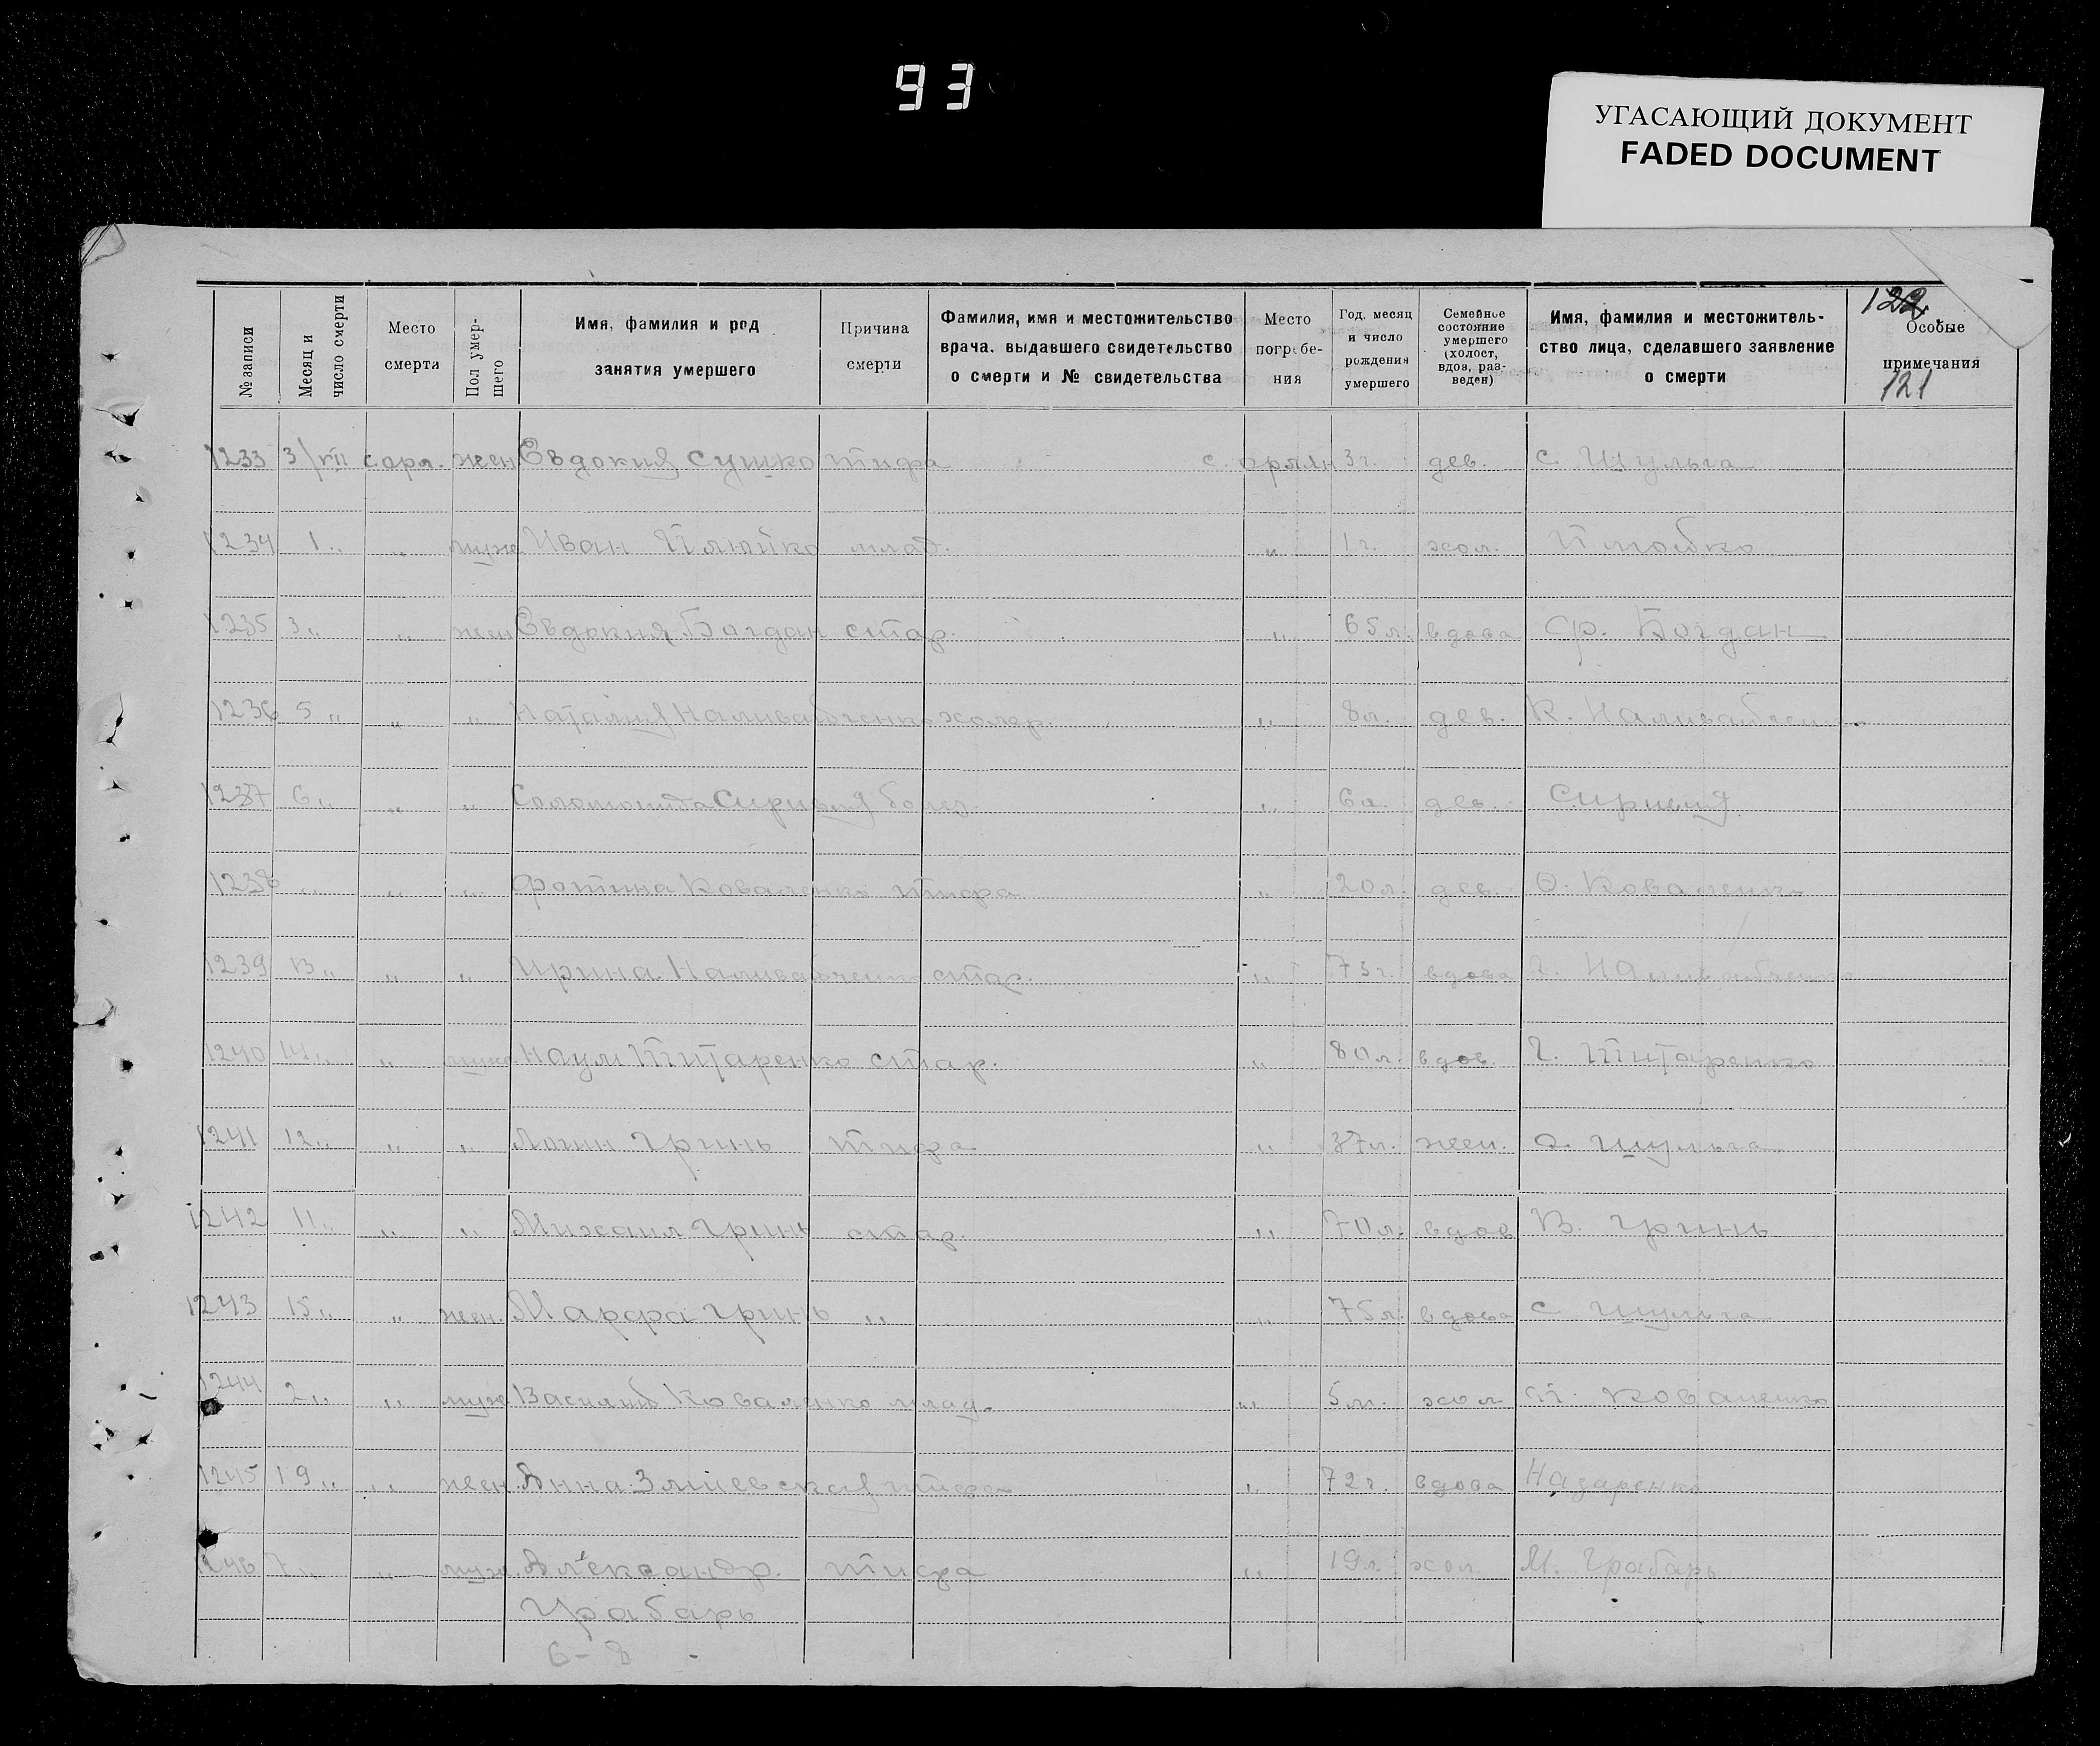 93
УГАСАЮЩИЙ ДОКУМЕНТ
FADED DOCUMENT
122
121
№ записи
Месяц и число смерти
Место смерти
Пол умершего
Имя, фамилия и род занятия умершего
Причина смерти
Фамилия, имя и местожительство врача. выдавшего свидетельство о смерти и № свидетельства
Место погребения
Год. месяц и число рождения умершего
Семейное состояние умершего (холост, вдов, разведен)
Имя, фамилия и местожительство лица, сделавшего заявление о смерти
Особые примечания
1233 3/VII с орл. жен Евдокия Сушко тифа с. орлян 3 г. дев. С. Шульга
1234 1 „ „ муж Иван млад. „ 1 г. хол.
1235 3 „ „ жен Евдокия Богдан стар. „ 65 л. вдова Ср. Богдан
1236 5 „ „ „ Наталия Наливайченко холер. „ 8 л. дев. К. Наливайченко
1237 6 „ „ „ болез. „ 6 л. дев.
1238 „ „ „ Фотина Коваленко тифа „ 20 л. дев. Ф. Коваленко
1239 13 „ „ „ Ирина Наливайченко стар. „ 73 г. вдова Г. Наливайченко
1240 14 „ „ муж. Наум Титаренко стар. „ 80 л. вдов. Г. Титаренко
1241 12 „ „ „ Гринь тифа „ 37 л. жен. Шульга
1242 11 „ „ „ Михаил Гринь стар. „ 70 л. вдов В. Гринь
1243 15 „ „ жен. Марфа Гринь „ „ 75 л. вдова С Шульга
1244 2 „ „ муж Василий Коваленко млад. „ 5 м. хол Коваленко
1245 19 „ „ жен. Анна Змиевская тифа „ 72 г. вдова Назаренко
1246 7 „ „ муж. Александр. тифа „ 19 л. хол. М. Грабарь
Грабарь
6-8